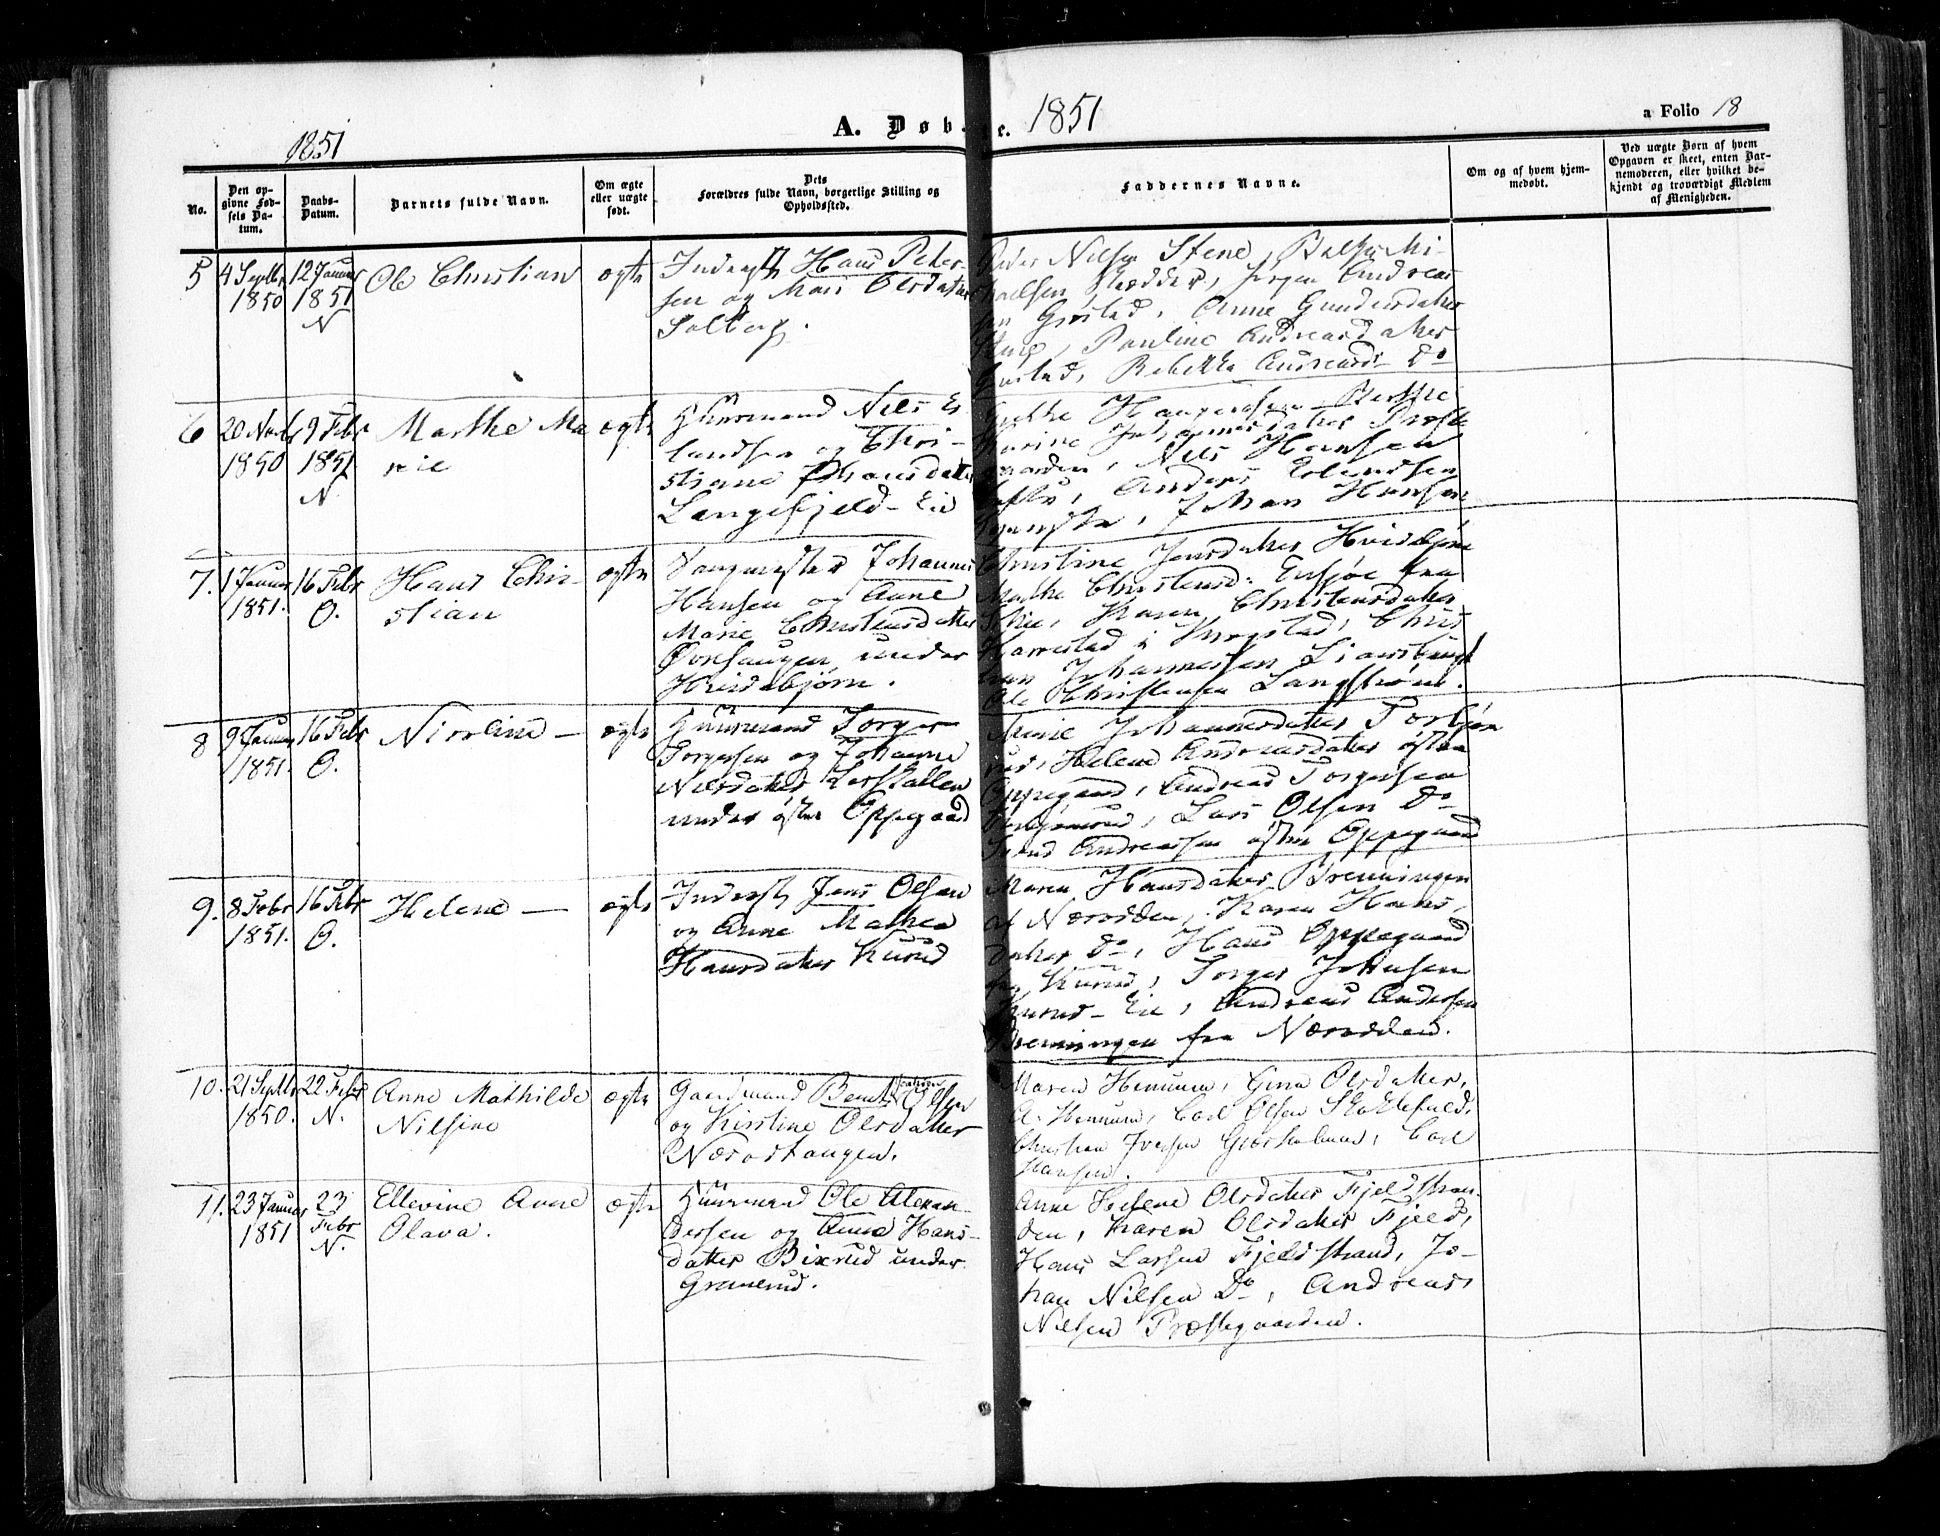 1851
A. Døb
e. 1851
a Folio 18
No.
Den op-
givne Fød-
sels Da-
tum.
Daabs-
Datum.
Barnets fulde Navn.
Om ægte
eller uægte
født.
Dets
Forældres fulde Navn, borgerlige Stilling og
Opholdssted.
Faddernes Navne.
Om og af hvem hjem-
medøbt.
Ved uægte Børn af hvem
Opgaven er skeet, enten Bar-
nemoderen, eller hvilket be-
kjendt og troværdigt Medlem
af Menigheden.
5
4 Septbr
1850
12 Januar
1851
N
Ole Christian
ægte
Inderst Hans Peter-
sen og Mari Olsdatter
Solberg.
Peder Nilsen Stene,
Skrædder, Jørgen Andrea
Anne Gundersdatter
Pauline Andreasdatter
Rebekka Andreasd. Do
6
20 Novbr
1850
9 Febr
1851
N
Marthe Ma
rie
ægte
Huusmand Nils Er
landsen og Chri-
stiane Johansdatter
Langefjeld-Eie
Nils Hansen
Anders Erlandsen
Johan Hansen
7.
1 Januar
1851.
16 Febr
O.
Hans Chri-
stian
ægte
Johannes
Hansen og Anne
Marie Christensdatter
under
Hvidebjørn.
Christine Jensdatter Hvidebjørn
Marthe Christensd. Ensjøe fra
Karen Christensdatter
Harrestad i Krogstad, Chris
tian Johannesen
Ole Christensen Langstrøm.
8
9 Januar
1851.
16 Febr
O.
Nicoline —
ægte
Huusmand Torger
Torgersen og Johanne
Nilsdatter
under østre Oppegaad
Marie Johannesdatter Torbjørn
rud, Helene Andreasdatter østre
Oppegaard, Andreas Torgersen
Lars Olsen Do
Andreassen østre Oppegaard
9.
8 Febr
1851.
16 Febr
O.
Helene —
ægte
Inderst Jens Olsen
og Anne Mathea
Hansdatter Kurud
Maren Hansdatter Brenningen
af Næsodden, Karen Hans
datter Do, Hans Oppegaard
fra Kurud, Torger Johnsen
Kurud-Eie, Andreas Andersen
Brenningen fra Næsodden.
10.
21 Septbr
1850.
22 Febr
N.
Anne Mathilde
Nilsine
ægte
Gaardmand Bernt Olsen
og Kirstine Olsdatter
Næsodtangen.
Maren Hemnum, Gina Olsdatter,
A. Hemnum, Carl Olsen
Christian Iversen Carl
Hansen.
11.
23 Januar
1851
23
Febr
N.
Ellevine Anne
Olava.
ægte
Huusmand Ole Alexan-
dersen og Anne Hans-
datter Bixrud under
Granerud.
Anne Helene Olsdatter Fjeldstran-
den, Karen Olsdatter Fjeld,
Hans Larsen Fjeldstrand, Jo-
han Nilsen Do, Andreas
Nilsen Præstegaarden.